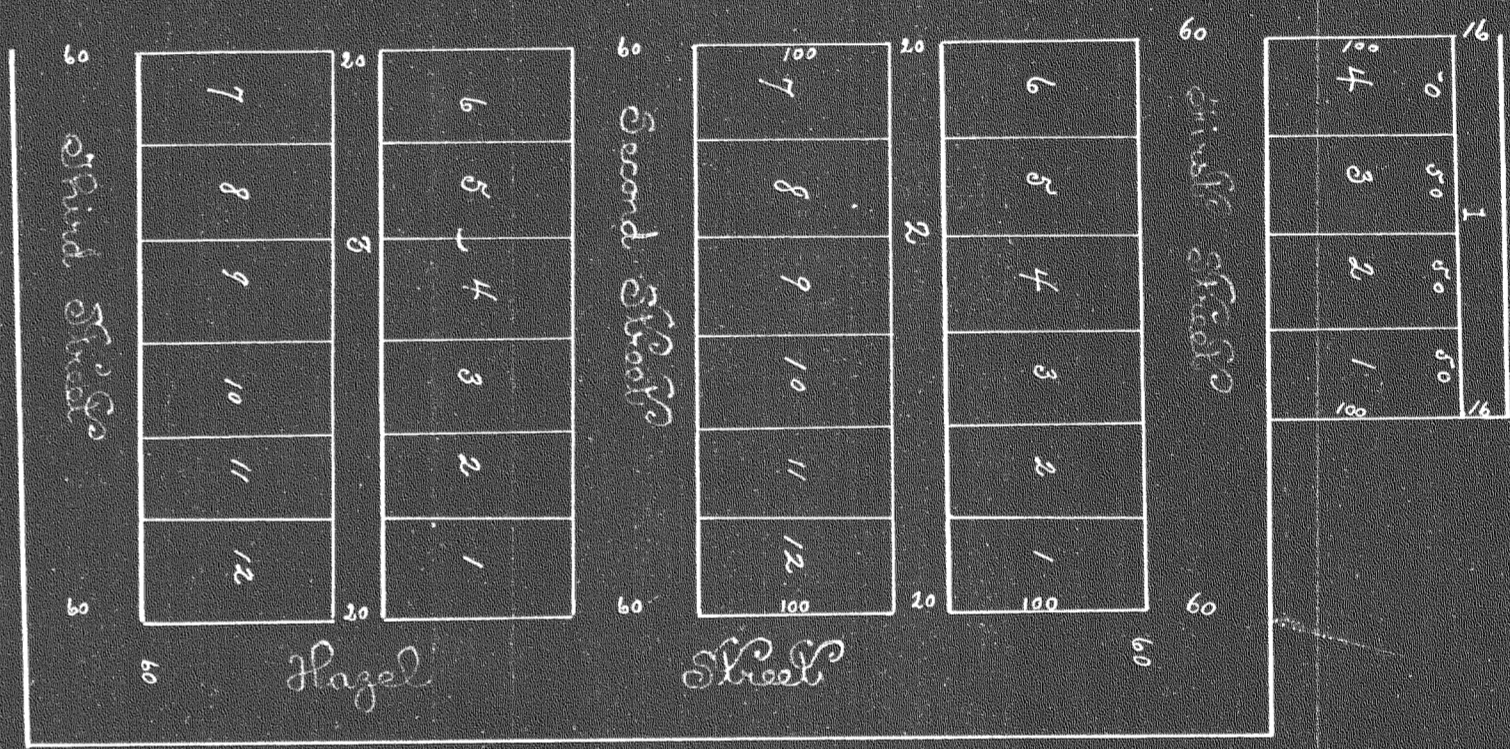 60
Third Street
60
7
8
9
10
11
12
20
3
20
6
5
4
3
2
1
60
Second Street
60
100
7
8
9
10
11
12
100
20
2
20
6
5
4
3
2
1
100
60
First Street
60
100
4
3
2
1
100
50
50
50
16
1
16
60
Hazel Street
60